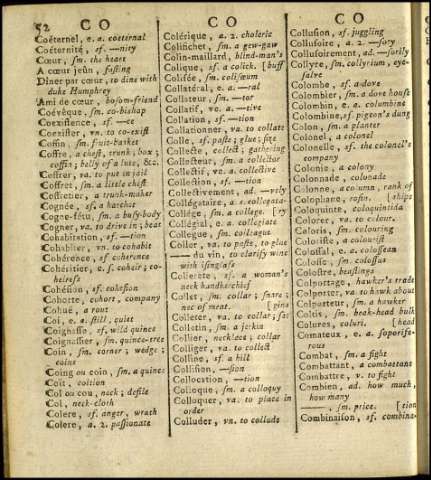 52
CO
CO
CO
Coëternel, e. a. coeternal
Coéternité, sf. —nity
Cœur, sm. the heart
A cœur jeûn, fasting
Dîner par cœur, to dine with
duke Humphrey
Ami de cœur, bosom-friend
Coévêque, sm. co-bishop
Coexistence, sf. —ce
Coexister, vn. to co-exist
Coffin, sm. fruit-basket
Coffre, a chest, trunk; box;
coffin; belly of a lute, &c.
Coffrer, va. to put in jail
Coffret, sm. a little chest
Coffretier, a trunk-maker
Cognée, sf. a hatchet
Cogne-fétu, sm. a busy-body
Cogner, va. to drive in; beat
Cohabitation, sf. —tion
Cohabiter, vn. to cohabit
Cohérence, sf coherence
Cohéritier, e. s. coheir; co-
heiress
Cohésion, sf. cohesion
Cohorte, cohort, company
Cohue, a rout
Coi, e. a. still, quiet
Coignasse, sf. wild quince
Coignassier, sm. quince-tree
Coin, sm. corner; wedge;
coins
Coing ou coin, sm. a quince
Coït, coition
Col ou cou, neck; defile
Col, neck-cloth
Colere, sf. anger, wrath
Colere, a. 2. passionate
Colérique, a. 2. cholerie
Colifichet, sm. a gew-gaw
Colin-maillard, blind-man's
Colique, sf. a colick, [buff
Colisée, sm. coliseum
Collatéral, e. a. —ral
Collateur, sm. —tor
Collatif, ve. a. —tive
Collation, sf. —tion
Collationner, va. to collate
Colle, sf. paste; glue; size
Collecte, collect; gathering
Collecteur, sm. a collector
Collectif, ve. a. collective
Collection, sf. —tion
Collectivement, ad. —vely
Collégataire, a. s. collegata-
Collége, sm. a college. [ry
Collégial, e. a. collegiate
Collegue, sm. colleague
Coller, va. to paste, to glue
—— du vin, to clarify wine
with isinglass
Collerette, sf. a woman's
neck handkerchief
Collet, sm. collar; snare;
nec of meat. [pins
Colleter, va. to collar; set
Colletin, sm. a jerkin
Collier, necklace; collar
Colliger, va. to collect
Colline, sf. a hill
Collision, —sion
Collocation, —tion
Colloque, a colloquy
Colloquer, va. to place in
order
Colluder, vn. to collude
Collusion, sf. juggling
Collusoire, a. 2. —sory
Collusoirement, ad. —sorily
Collyre, sm. collyrium, eye-
salve
Colombe, sf. a dove
Colombier, sm. a dove house
Colombin, e. a. columbine
Colombine, sf. pigeon's dung
Colon, sm. a planter
Colonel, a colonel
Colonelle, sf. the colonel's
company
Colonie, a colony
Colonnade, colonade
Colonne, a column, rank of
Colophane, rosin, [ships
Coloquinte, coloquintida
Colorer, va. to colour.
Coloris, sm. colouring
Coloriste, a colourist
Colossal, e. a. colossean
Colosse, sm. colossus
Colostre, beastings
Colportage, hawker's trade
Colporter, va to hawk about
Colporteur, sm. a hawker
Coltis, sm. beak-head bulk
Colures, coluri. [head
Comateux, e. a. soporife-
rous
Combat, sm. a fight
Combattant, a combatant
Combattre, v. to fight
Combien, ad. how much,
how many
——, sm. price. [tion
Combinaison, sf. combina-